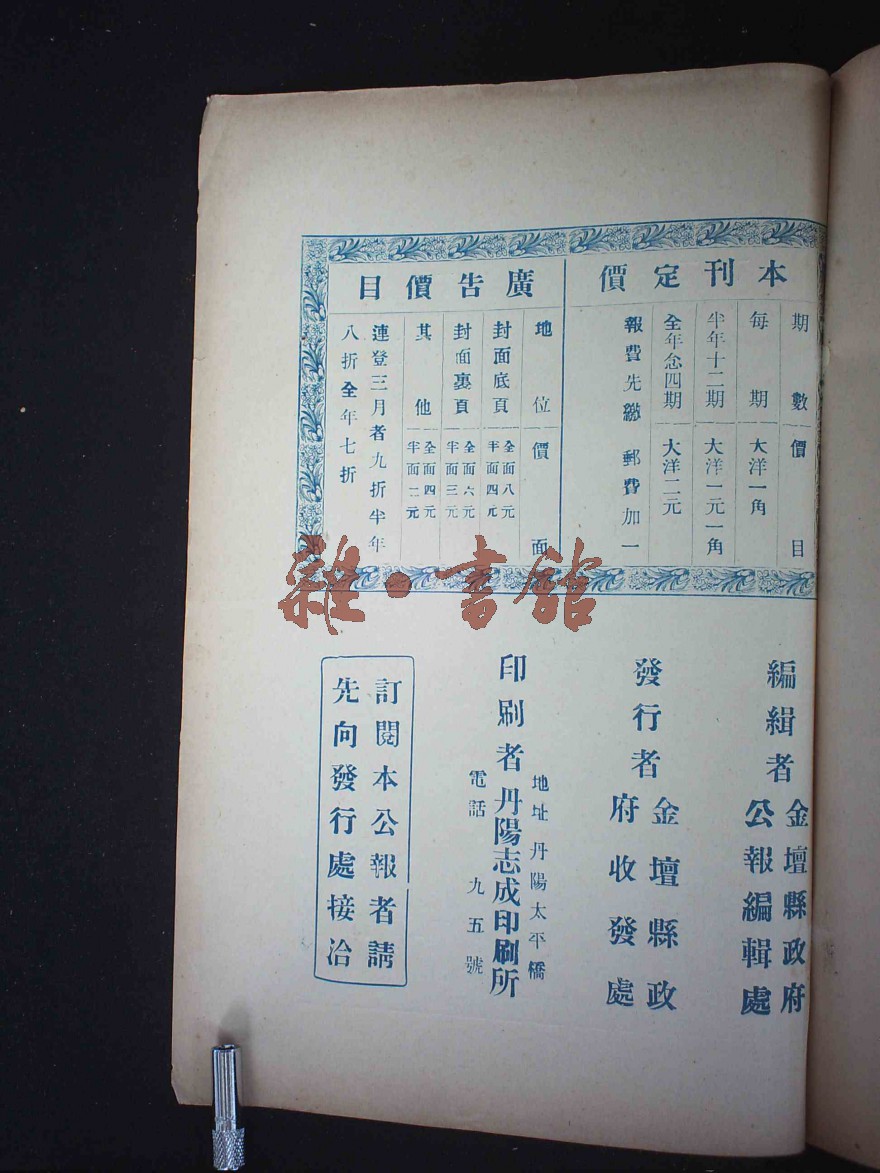 本刊定價
期數 價目
每期 大洋一角
半年十二期 大洋一元一角
全年念四期 大洋二元
報費先繳 郵費加一
廣告價目
地位 價面
封面底頁 全面八元 半面四元
封面裏頁 全面六元 半面三元
其他 全面四元 半面二元
連登三月者九折半年
八折全年七折
編緝者 金壇縣政府
公報編輯處
發行者 金壇縣政
府收發處
地址 丹陽太平橋
印刷者 丹陽志成印刷所
電話 九五號
訂閱本公報者請
先向發行處接洽
雜·書館